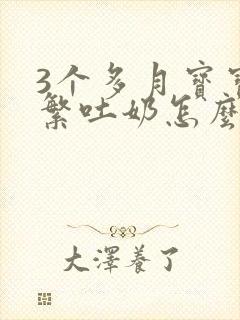 3个多月寶
繁吐奶怎麼
大澤養了